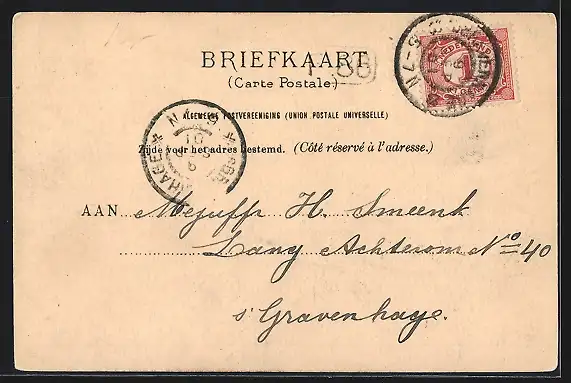 BRIEFKAART
(Carte Postale.)
ALGEMEENE POSTVEREENIGING (UNION POSTALE UNIVERSELLE)
Zijde voor het adres bestemd. (Côté réservé à l'adresse.)
AAN Mejuffr H. Smeenk
Lang Achterom No 40
s' Gravenhage.
NEDERLAND
1
CENT